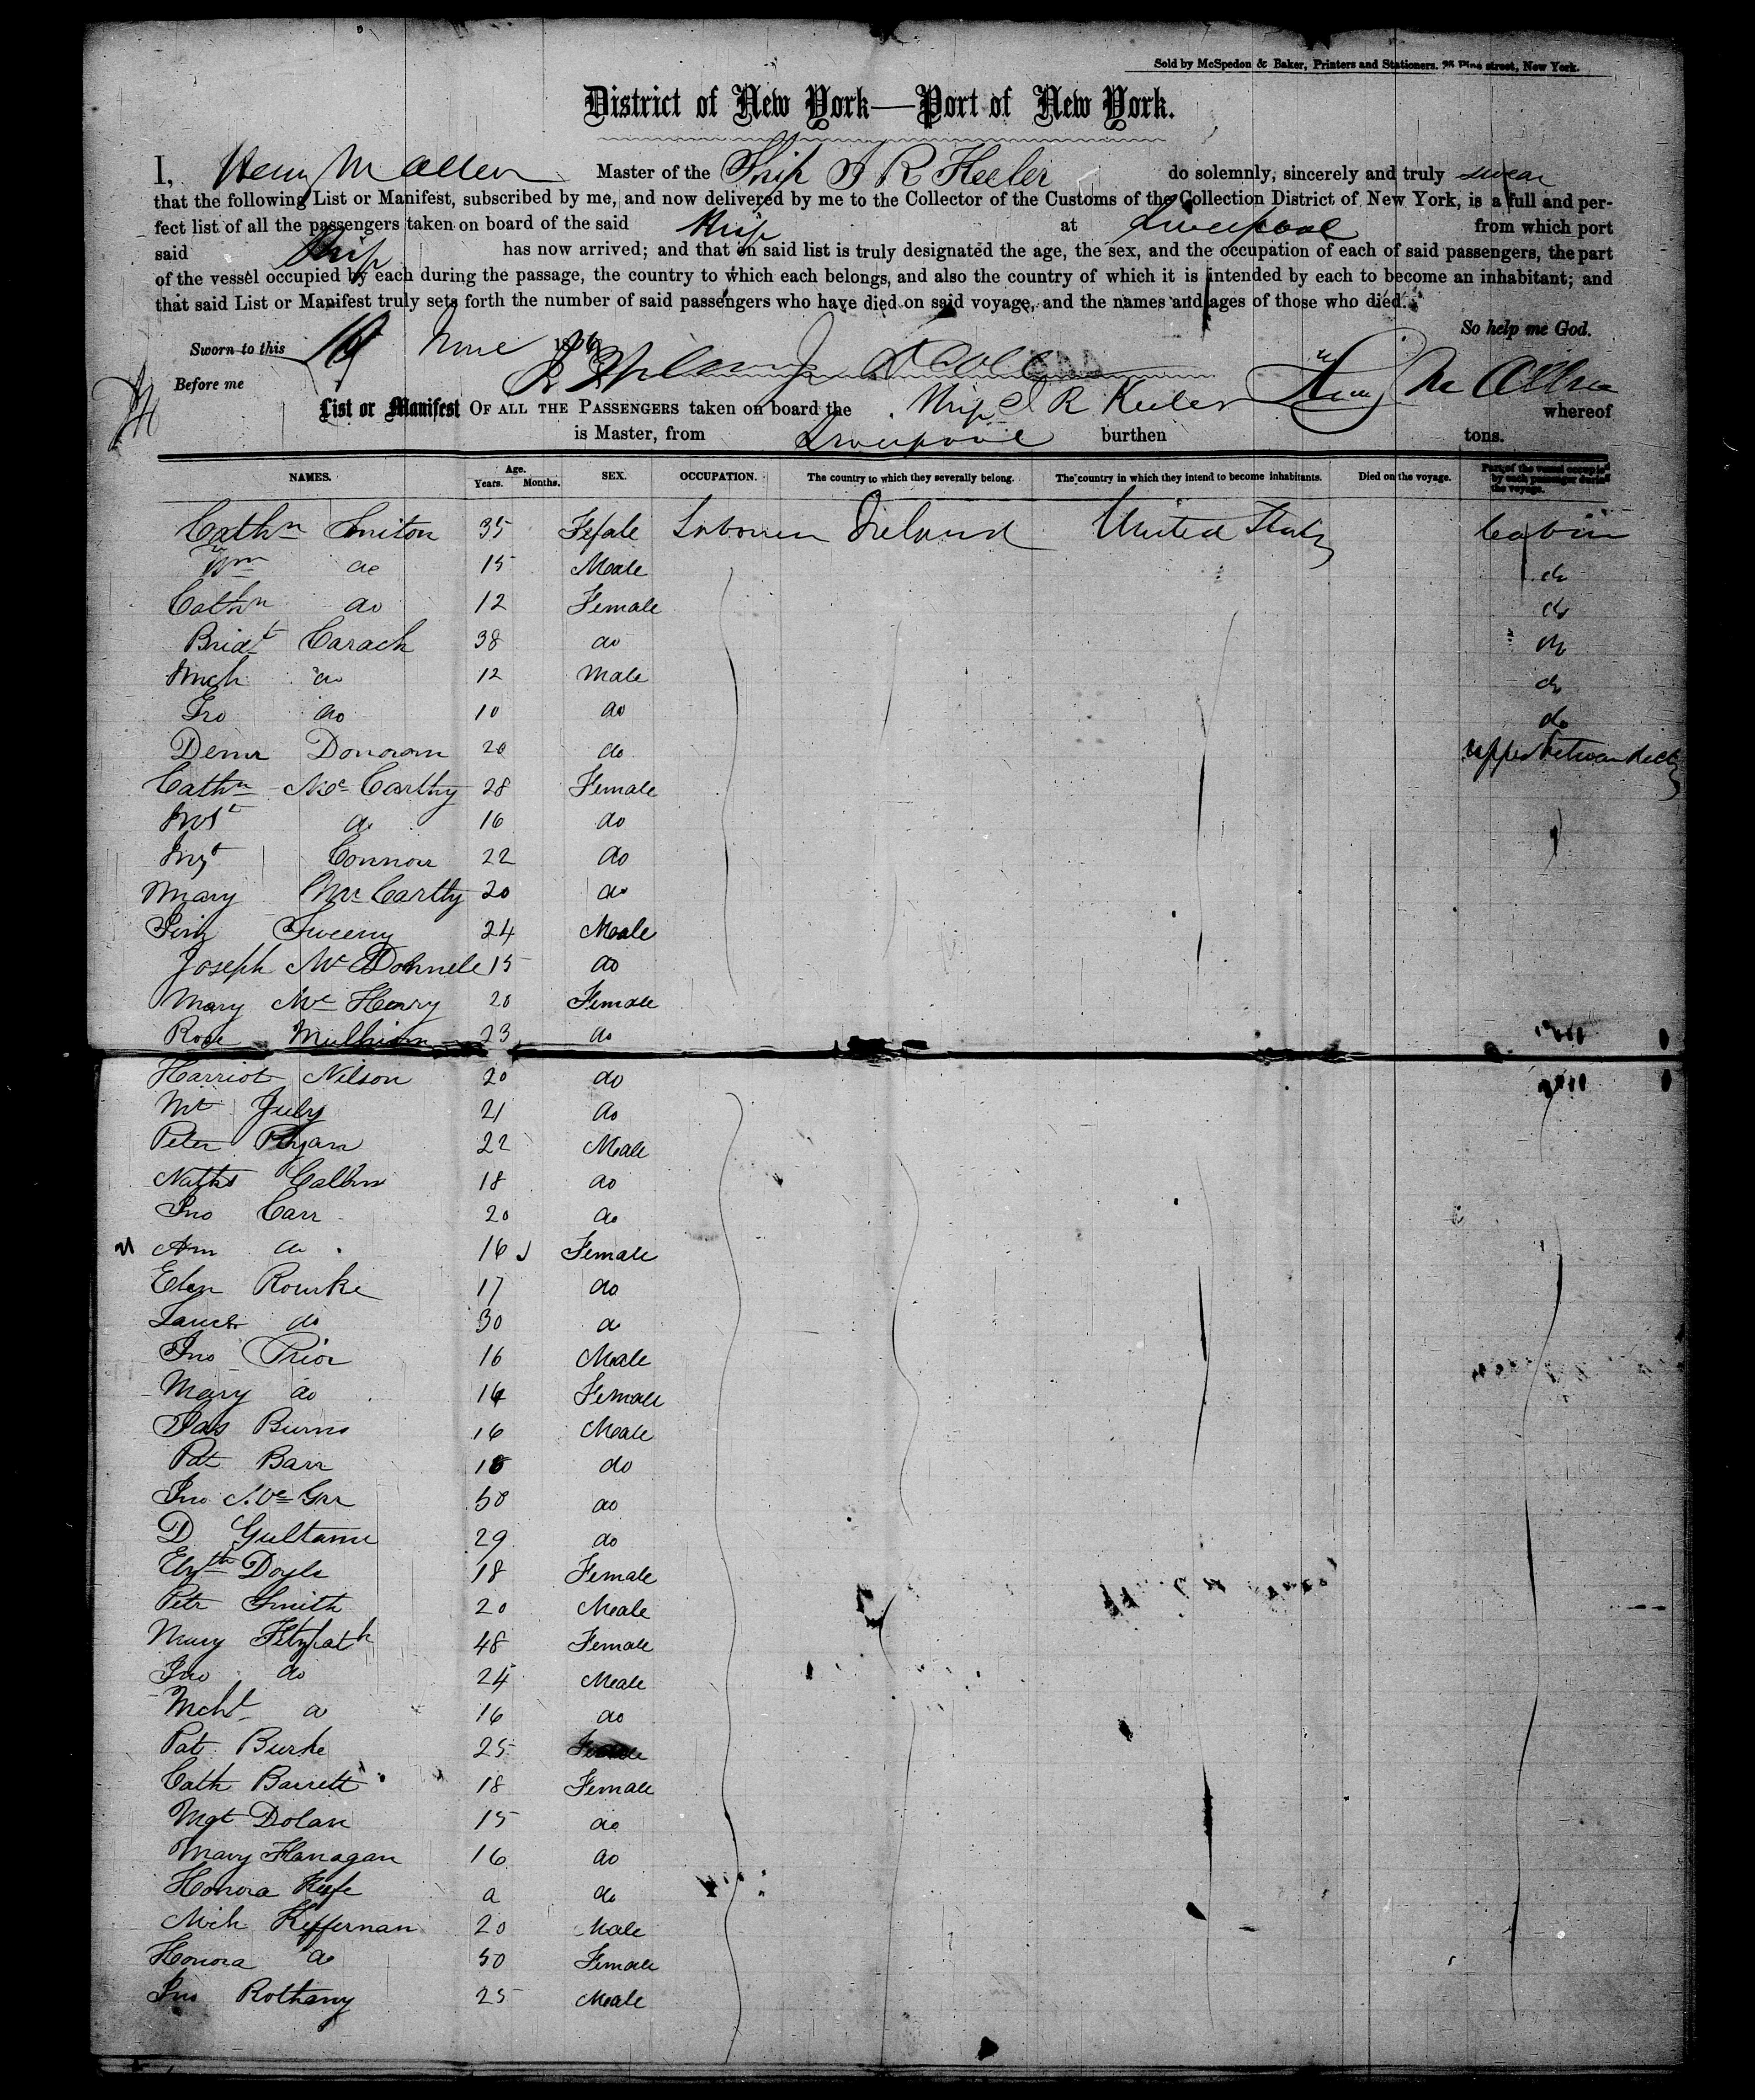 Sold by McSpedon & Baker, Printers and Stationers. 25 Pine street, New York.
District of New York—Port of New York.
I, Henry M Allen Master of the Ship J R Keeler do solemnly, sincerely and truly swear
that the following List or Manifest, subscribed by me, and now delivered by me to the Collector of the Customs of the Collection District of New York, is a full and per-
fect list of all the passengers taken on board of the said Ship at Liverpool from which port
said Ship has now arrived; and that on said list is truly designated the age, the sex, and the occupation of each of said passengers, the part
of the vessel occupied by each during the passage, the country to which each belongs, and also the country of which it is intended by each to become an inhabitant; and
that said List or Manifest truly sets forth the number of said passengers who have died on said voyage, and the names and ages of those who died.
So help me God.
Sworn to this June 186
Before me
List or Manifest OF ALL THE PASSENGERS taken on board the Ship J R Keeler Henry M Allen whereof
is Master, from Liverpool burthen tons.
NAMES. Age. Years. Months. SEX. OCCUPATION. The country to which they severally belong. The country in which they intend to become inhabitants. Died on the voyage. Part of the vessel occupied by each passenger during the voyage.
Cathn 35 Female Ireland United States Cabin
Wm do 15 Male do
Cathn do 12 Female do
Bridt Carach 38 do do
Mich do 12 Male do
Jno do 10 do do
Donovan 20 do upper between decks
Cathn McCarthy 28 Female
do 16 do
Connor 22 do
Mary McCarthy 20 do
Sweeny 24 Male
Joseph McDonnele 15 do
Mary McHenry 20 Female
Rose 23 do
Harriot Nilson 20 do
July 21 do
Peter Ryan 22 Male
18 do
Jno Carr 20 do
Ann do 16 Female
Ellen Rourke 17 do
do 30 do
Jno Prior 16 Male
Mary do 14 Female
Jas Burns 16 Male
Pat Barr 18 do
Jno 50 do
D 29 do
Elzth Doyle 18 Female
Petr Smith 20 Male
Mary Fitzpatk 48 Female
Jno do 24 Male
Mchl do 16 do
Pat Burke 25
Cath Barrett 18 Female
Mgt Dolan 15 do
Mary Flanagan 16 do
Honora Keefe a do
Mich Heffernan 20 Male
Honora do 50 Female
Jno Rothany 25 Male